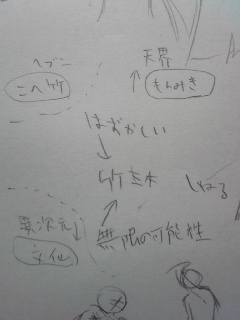 ヘブン
天界
こへ竹
もんみき
はずかしい
竹三木
しねる
異次元
無限の可能性